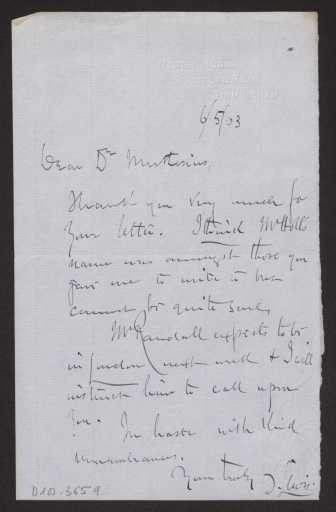 6/5/03
Dear Dr
Thank you very much for
your letter. I think Mr
name was amongst those you
gave me to write to but
cannot be quite sure.
Mr Randall expects to be
in London next week & I will
instruct him to call upon
you. In haste with kind
remembrances.
Yours truly
D10-365 9